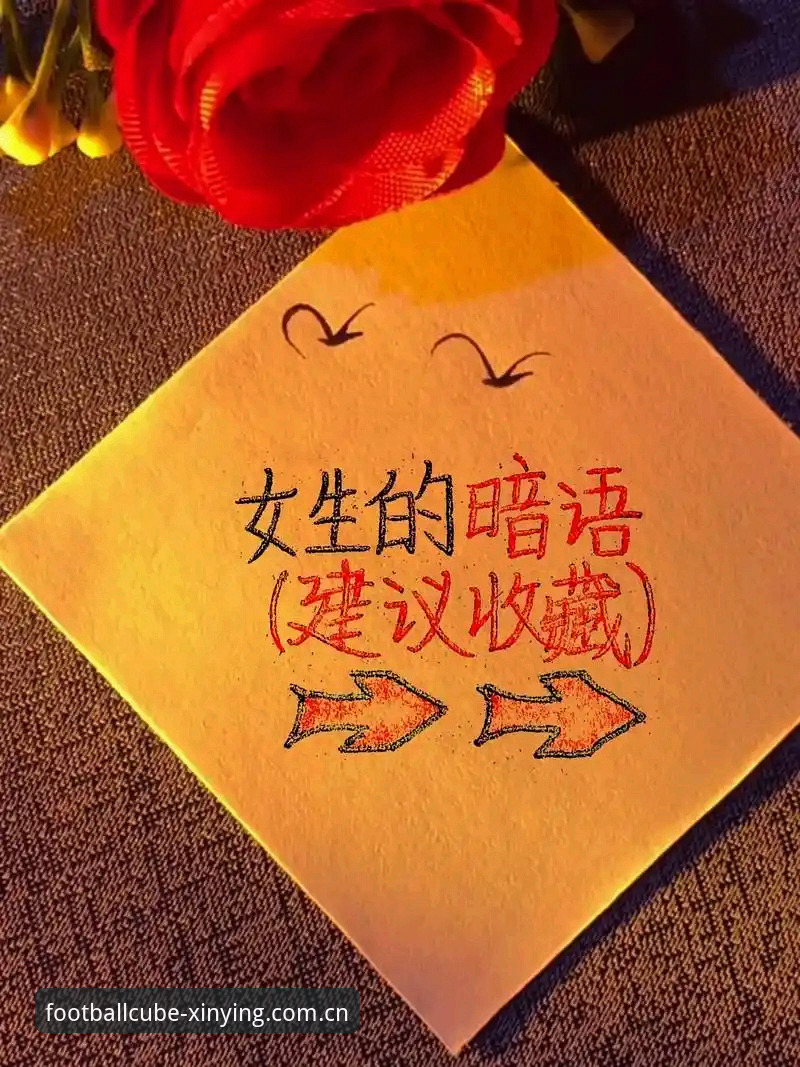 女生的暗语
(建议收藏)
footballcube-xinying.com.cn